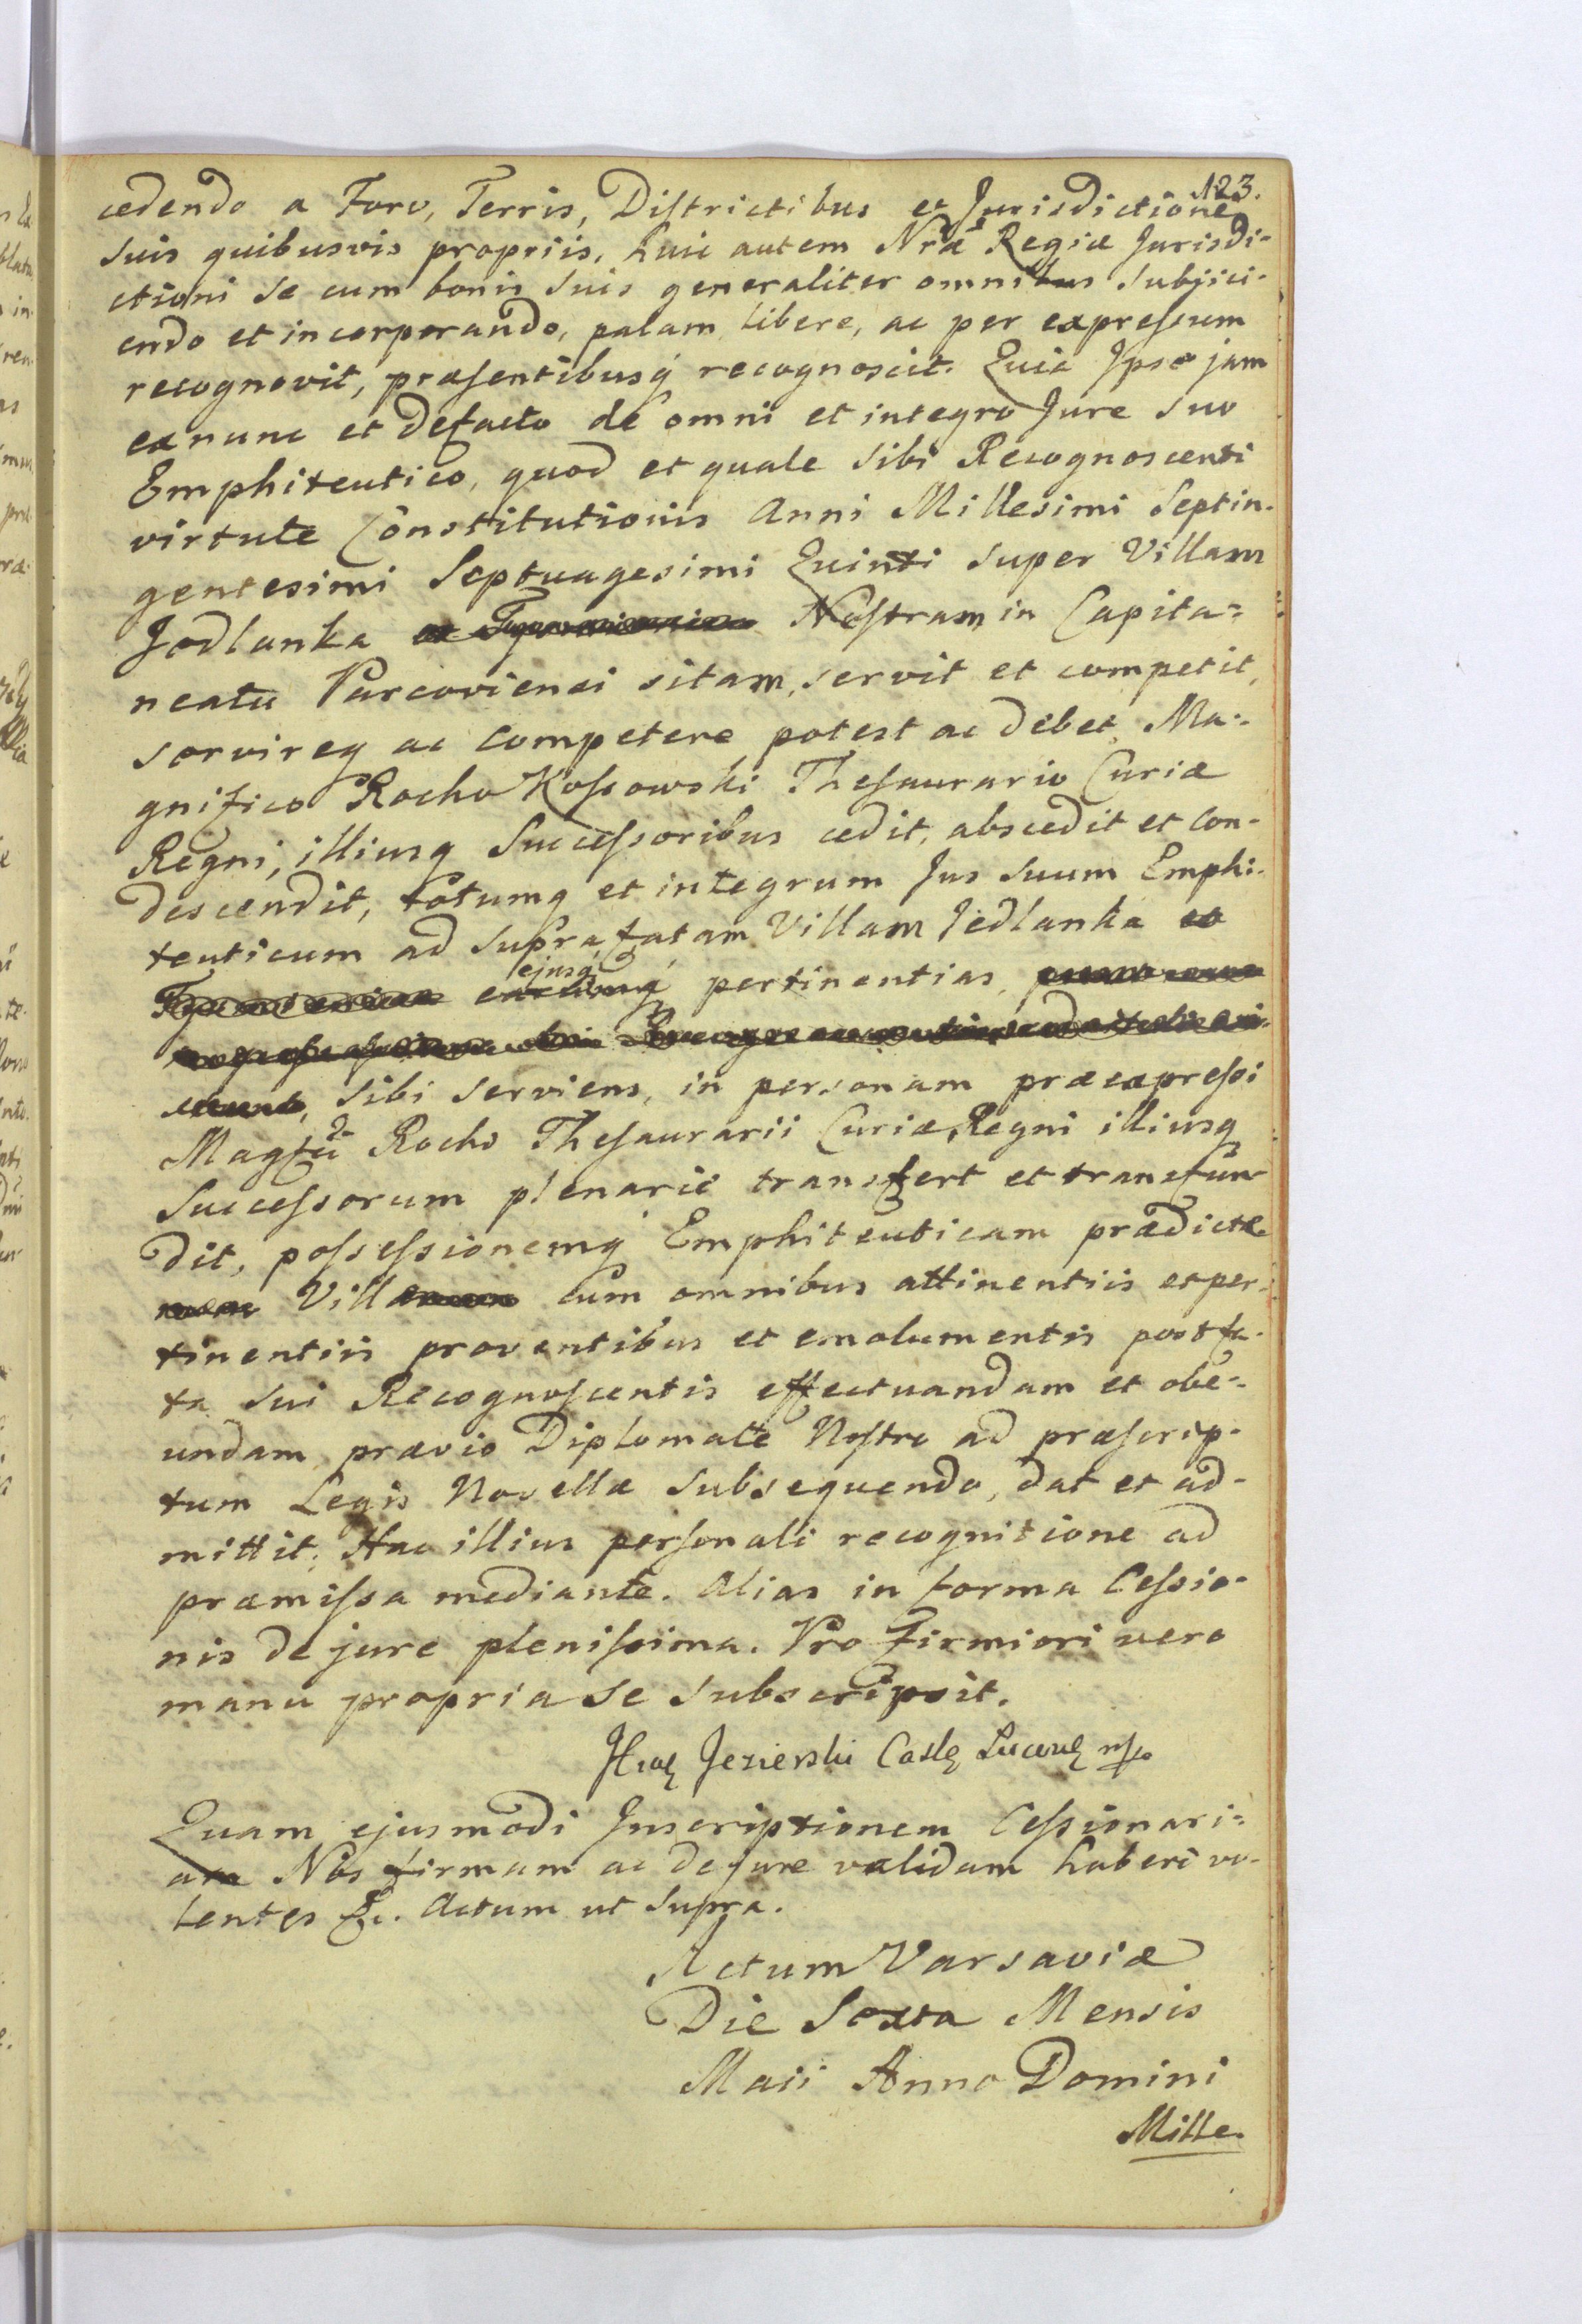 123.
cedendo a Foro, Terris, Districtibus et Jurisdictione
suis quibusvis propriis, huic autem Nrae Regiae Jurisdi-
ctioni se cum bonis suis generaliter omnibus subjici-
endo et incorporando, palam libere, ac per expressum
recognovit, praesentibusq recognoscit. Quia Ipse jam
ex nunc et defacto de omni et integro Jure suo
Emphiteutico, quod et quale sibi Recognoscenti
virtute Constitutionis Anni Millesimi Septin-
gentesimi Septuagesimi Quinti super Villam
Jedlanka Nostram in Capita=
neatu Parcoviensi sitam, servit et competit,
servireq ac competere potest ac debet, Ma-
gnifico Rocho Kossowski Thesaurario Curiae
Regni, illiusq Successoribus cedit, abscedit et con-
descendit, totumq et integrum Jus suum Emphi-
teuticum ad supra fatam Villam Jedlanka et
ejusq pertinentias,
sibi serviens, in personam praeexpressi
Magfci Rocho Thesaurarii Curiae Regni illiusq
Successorum plenarie transfert et transfun-
dit, possessionemq Emphiteuticam praedictae
Villae cum omnibus attinentiis et per-
tinentiis proventibus et emolumentis post fa-
ta sui Recognoscentis effectuandam et obe-
undam, praevio Diplomate Nostro ad praescrip-
tum Legis Novellae subsequendo, dat et ad-
mittit. Hac illius personali recognitione ad
praemissa mediante. Alias in forma Cessio-
nis de jure plenissima. Pro firmiori vero
manu propria se subscripsit.
Jezierski Castl Lucowl mp
Quam ejusmodi Inscriptionem Cessionari=
am Nos firmam ac de jure validam haberi vo-
lentes &c. Actum ut supra.
Actum Varsaviae
Die Sexta Mensis
Maii Anno Domini
Mille-